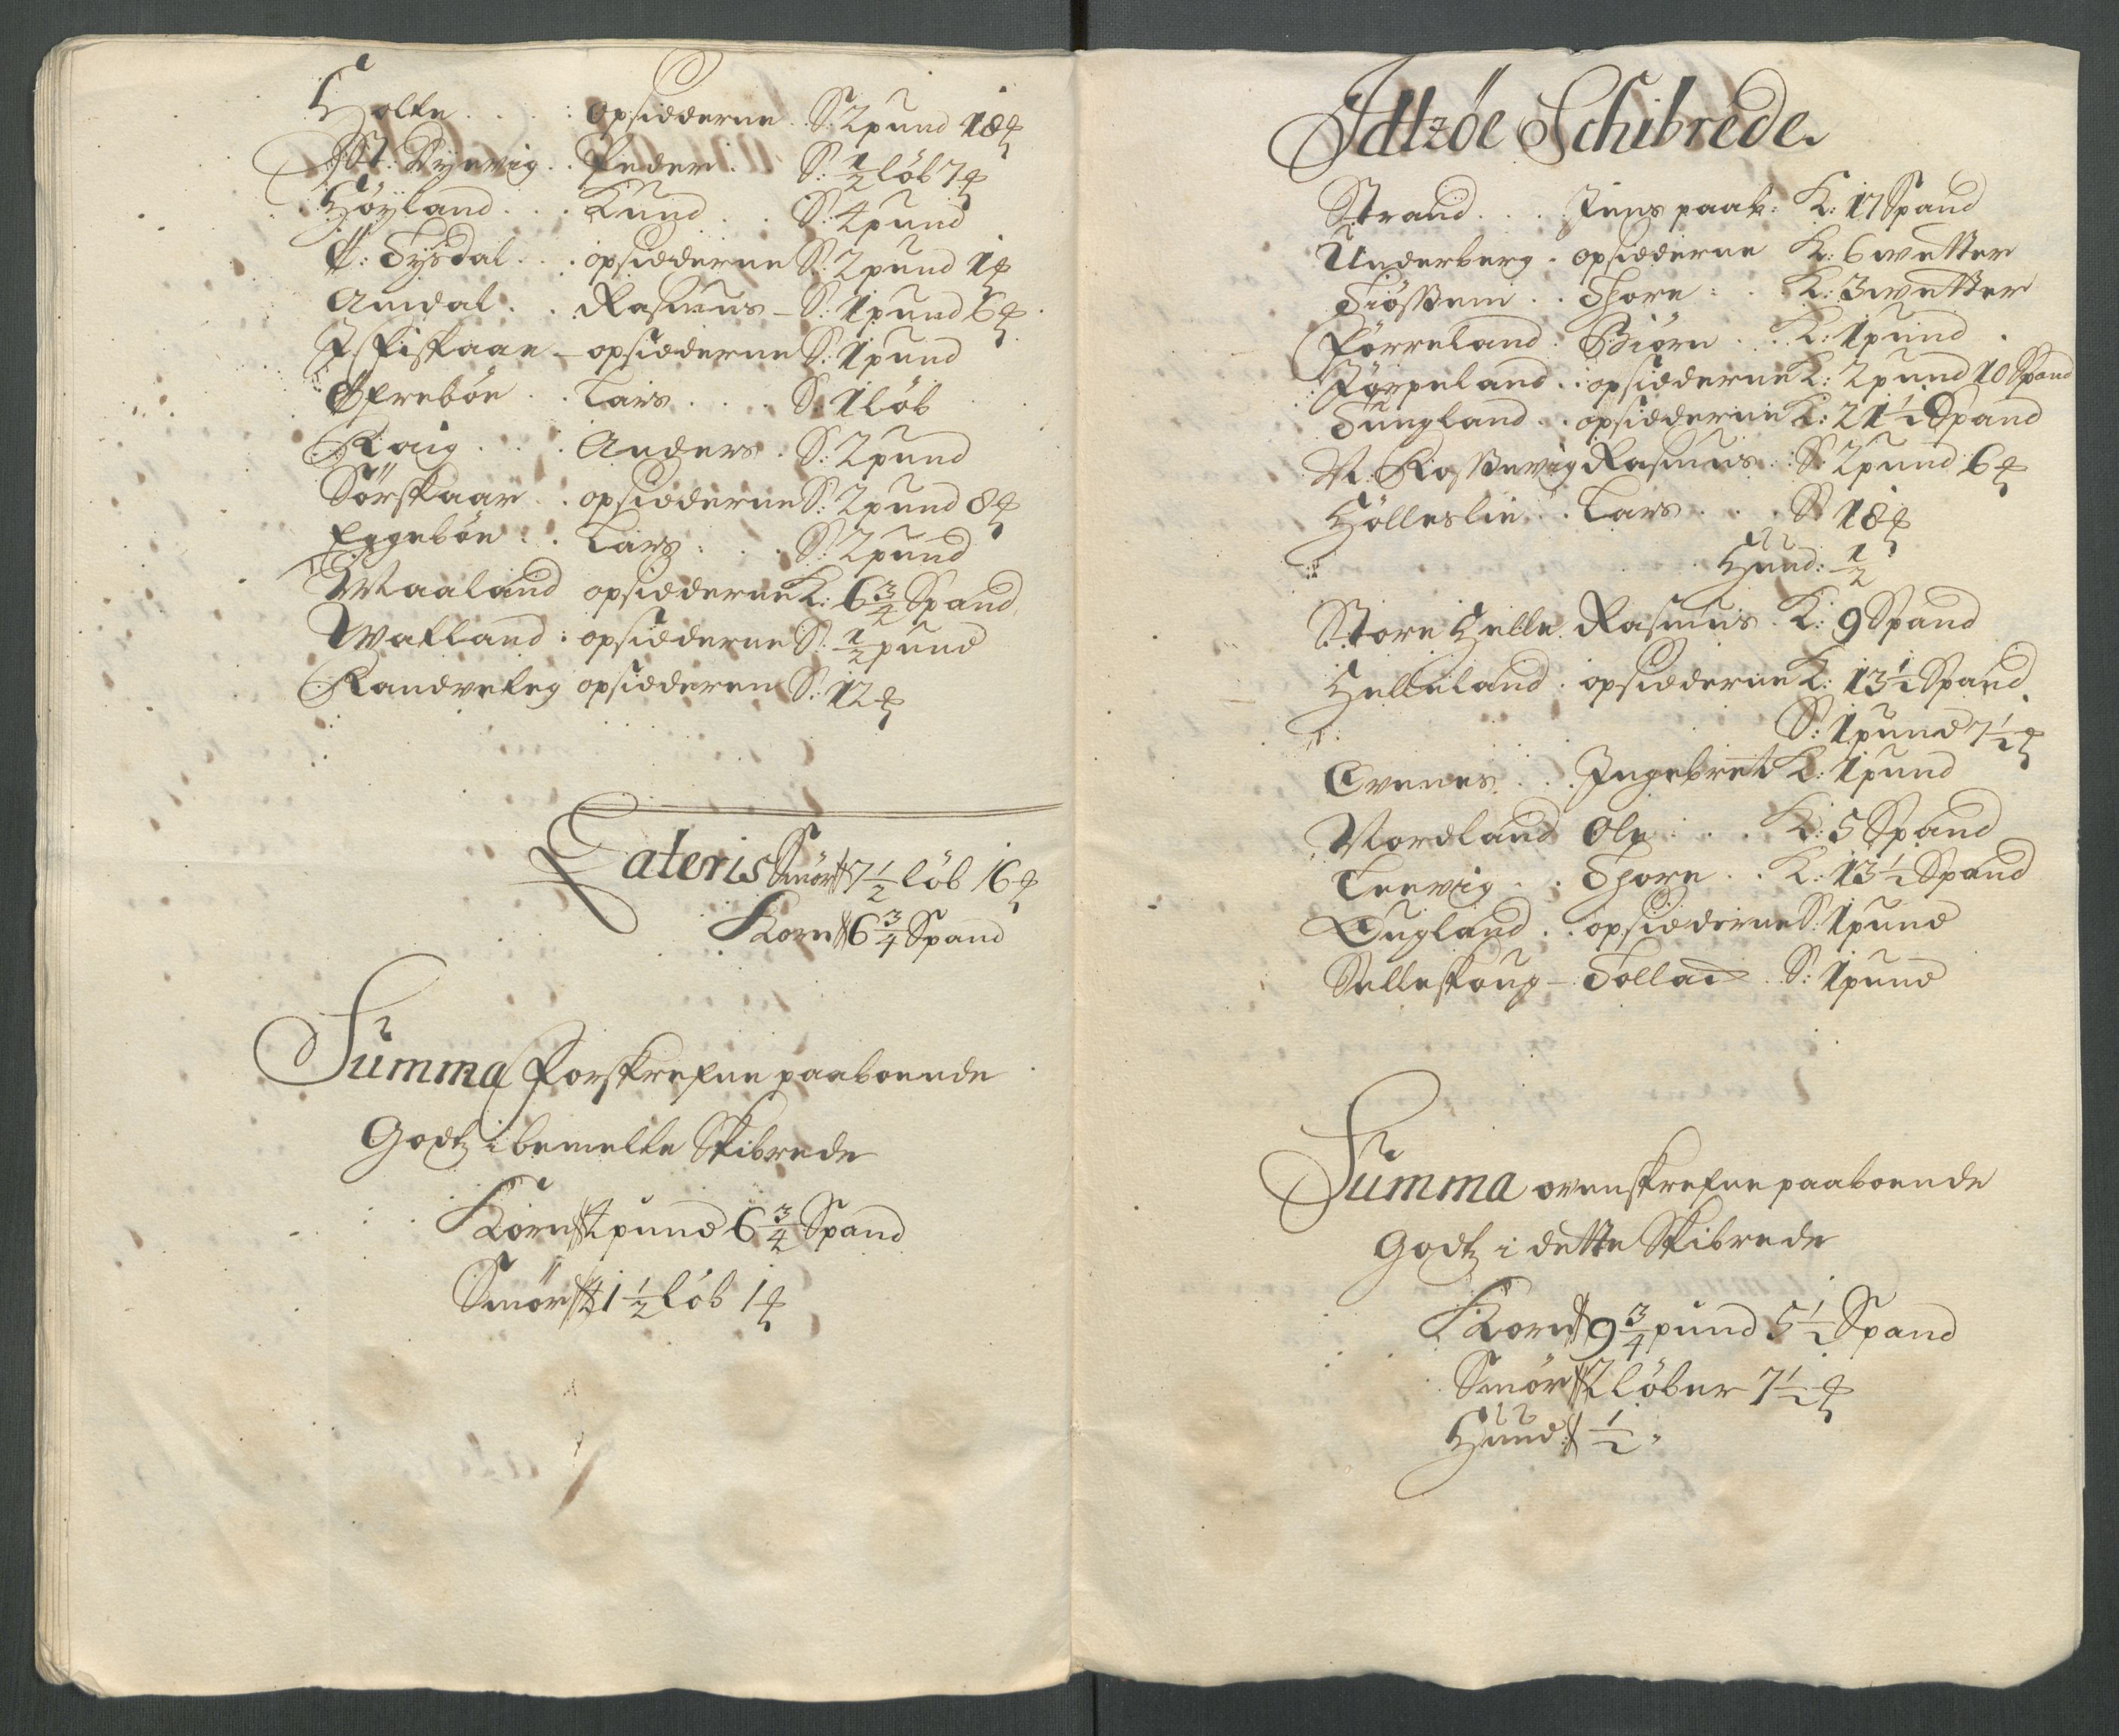 Holte . . . : opsidderne . S: 2 pund 18 ℔
St: Dÿrvig . . Peder . S: 1/2 löb 7 ℔
Höÿland . . . Knud . . S: 4 pund
Ö: Tysdal . . . opsidderne S: 2 pund 1 ℔
Amdal . . Rasmus – S: 1 pund 6 ℔
Fiskaae – opsidderne S: 1 pund
Öfreböe . . Lars . . . S: 1 löb
Raig . . . Anders . S: 2 pund
Sörskaar . . opsidderne S: 2 pund 8 ℔
Eggeböe . . Lars . . . S: 2 pund
Maaland opsidderne K: 6 3/4 Spand
Watland : opsidderne S: 1/2 pund
Randveleg opsidderen S: 12 ℔
Lateris Smör 7 1/2 löb 16 ℔
Korn 6 3/4 Spand
Summa Forskrefne paaboende
Godtz i bemelte Skibrede
Korn 4 pund 6 3/4 Spand
Smör 41 1/2 löb 1 ℔
Idtzöe Schibrede
Strand . . . Jens paab: K: 17 Spand
Underberg . opsidderne K: 6 wetter
Fiösteni . . Thore : . K: 3 wetter
Pörreland : Biörn . . K: 1 pund
Jörpeland . : opsidderne K: 2 pund 10 Spand
Tungland . . opsidderne K: 21 1/2 Spand
N: Rostvevig Rasmus . S: 2 pund 6 ℔
Hölleslie . . Lars . . . S: 18 ℔
Huud: 1/2
Store Helle . Rasmus . K: 9 Spand
Helleland . opsidderne K: 13 1/2 Spand
S: 1 pund 7 1/2 ℔
Evenes . . . Ingebret K: 1 pund
Nordland Ole . . . K: 5 Spand
Leervig . . Thore . . K: 13 1/2 Spand
Tugland . . opsidderne S: 1 pund
Selleskoug – Tollad . S: 1 pund
Summa ovenskrefne paaboende
Godtz i dette Skibrede
Korn 9 3/4 pund 5 1/2 Spand
Smör 2 löber 7 1/2 ℔
Huud: 1/2